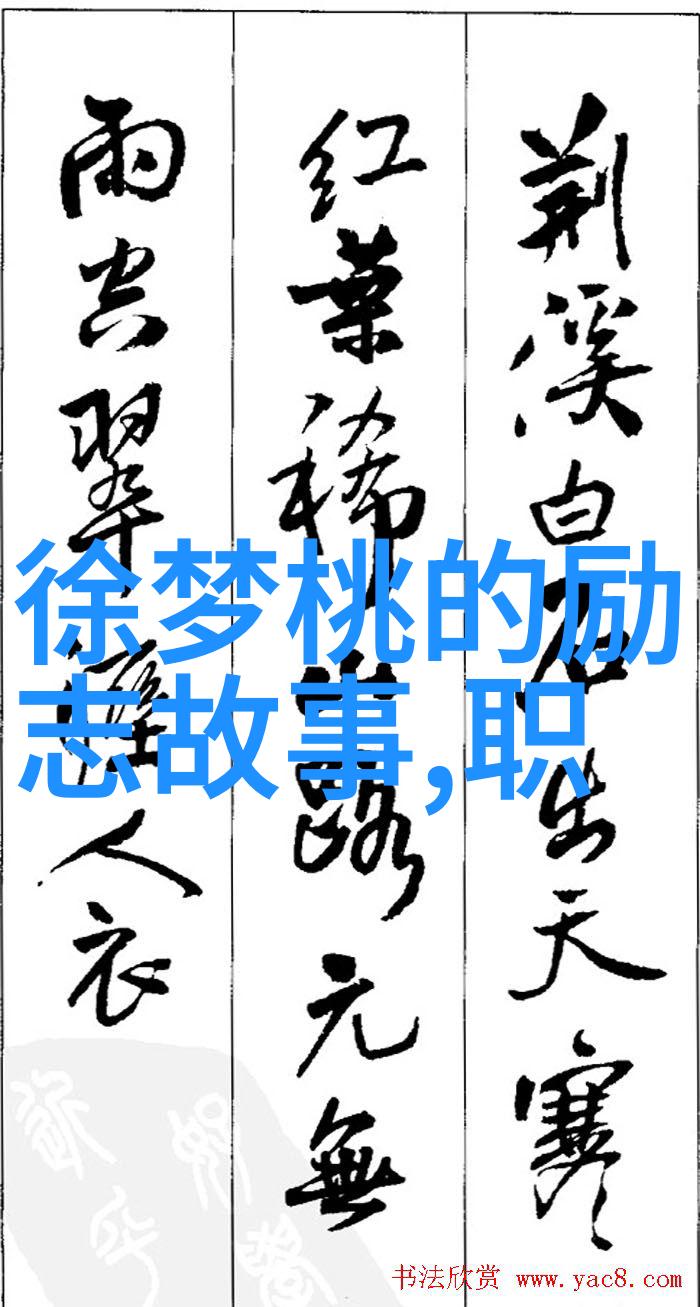 荆溪白石出天寒
红葉稀山路元無
雨空翠濕人衣
徐梦桃的励
志故事,职
书法欣赏 www.yac8.com